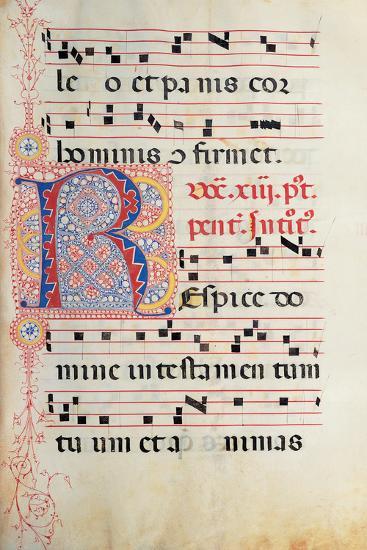 le o et panis cor
hominis ɔfirmet.
Dñc. xiij. pꝰt.
pent. Introitꝰ.
Respice do
mine in testamen tum
tu um et a nimas